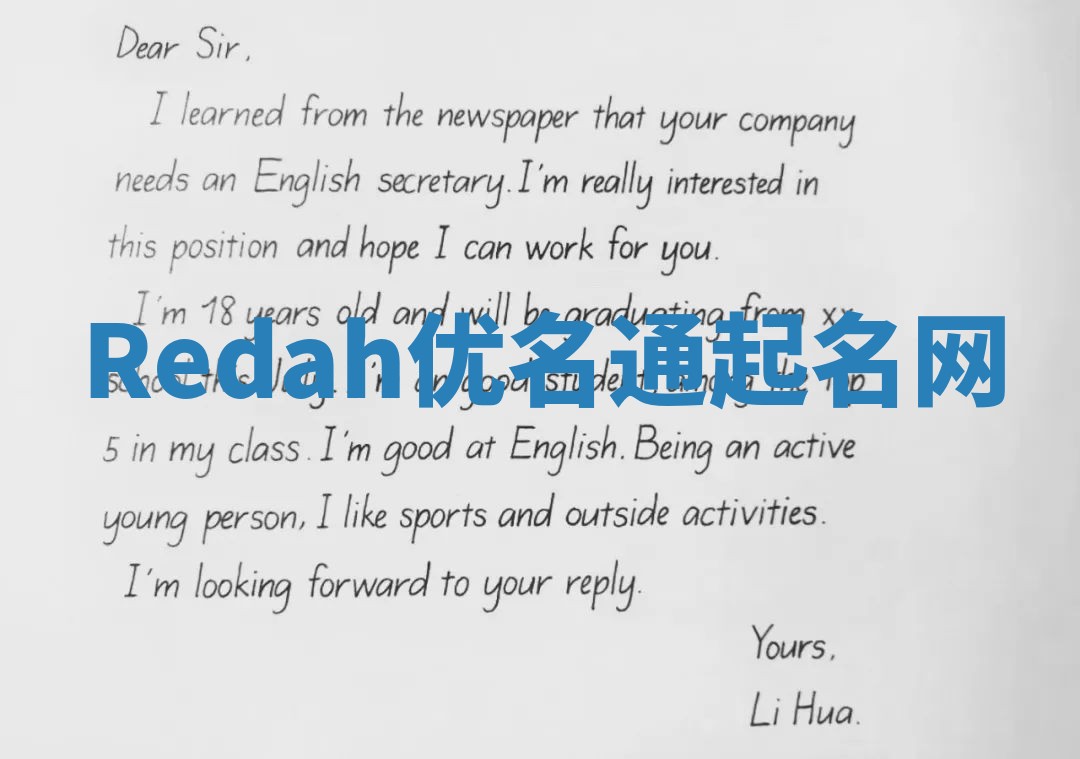 Dear Sir,
I learned from the newspaper that your company
needs an English secretary. I'm really interested in
this position and hope I can work for you.
I'm 18 years old and will be graduating from xx
Redah优名通起名网
school this July. I'm a good student among the top
5 in my class. I'm good at English. Being an active
young person, I like sports and outside activities.
I'm looking forward to your reply.
Yours,
Li Hua.